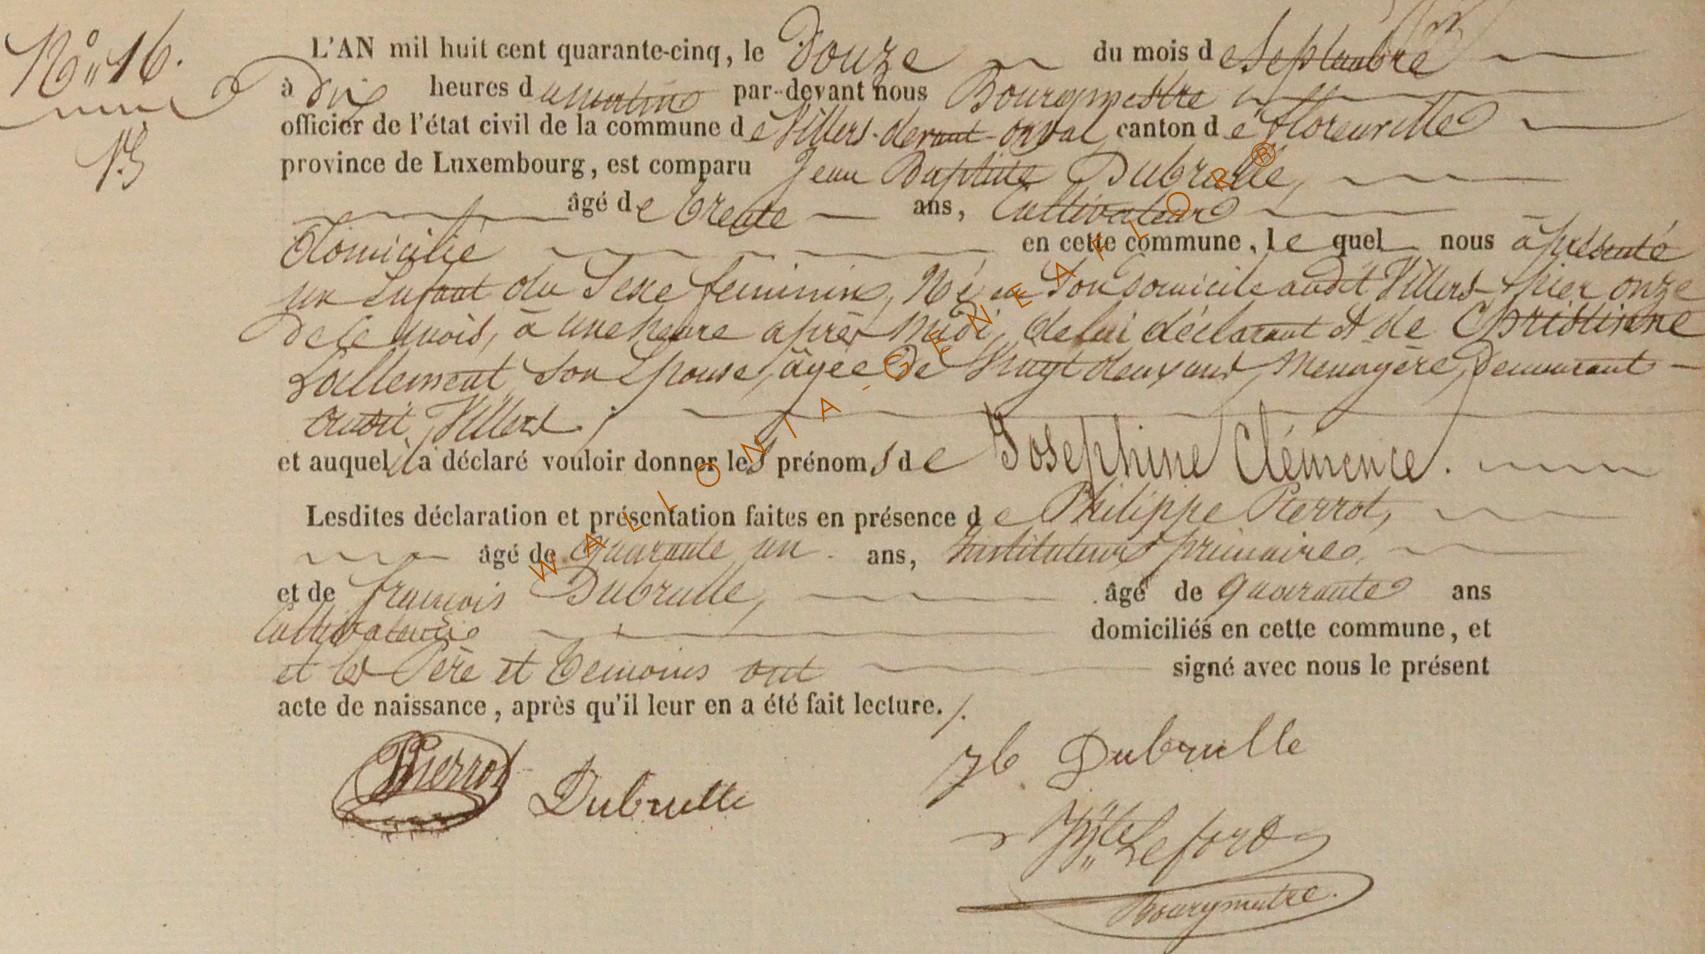 N° 16.
L'AN mil huit cent quarante-cinq, le Douze du mois de Septembre
à Dix heures du matin par-devant nous Bourgmestre
officier de l'état civil de la commune de Villers-devant-orval canton de florenville
province de Luxembourg, est comparu Jean Baptiste Dubrulle,
âgé de trente ans, Cultivateur
Domicilié en cette commune, le quel nous à présenté
un Enfant du Sexe feminin, Né en Son Domicile audit Villers hier onze
de ce mois, à une heure après Midi, de lui déclarant et de Christinne
Lallement son Epouse, âgée de Vingt deux ans, Menagère, Demeurant
audit Villers.
et auquel il a déclaré vouloir donner les prénoms de Josephine Clémence.
Lesdites déclaration et présentation faites en présence de Philippe Pierrot,
âgé de Quarante un ans, Instituteur primaire
et de françois Dubrulle, âgé de quarante ans
Cultivateur domiciliés en cette commune, et
et les Père et temoins ont signé avec nous le présent
acte de naissance, après qu'il leur en a été fait lecture.
Pierrot Dubrulle Jb Dubrulle
Lefort
Bourgmestre.
WALLONIA-GENEAFLOR®